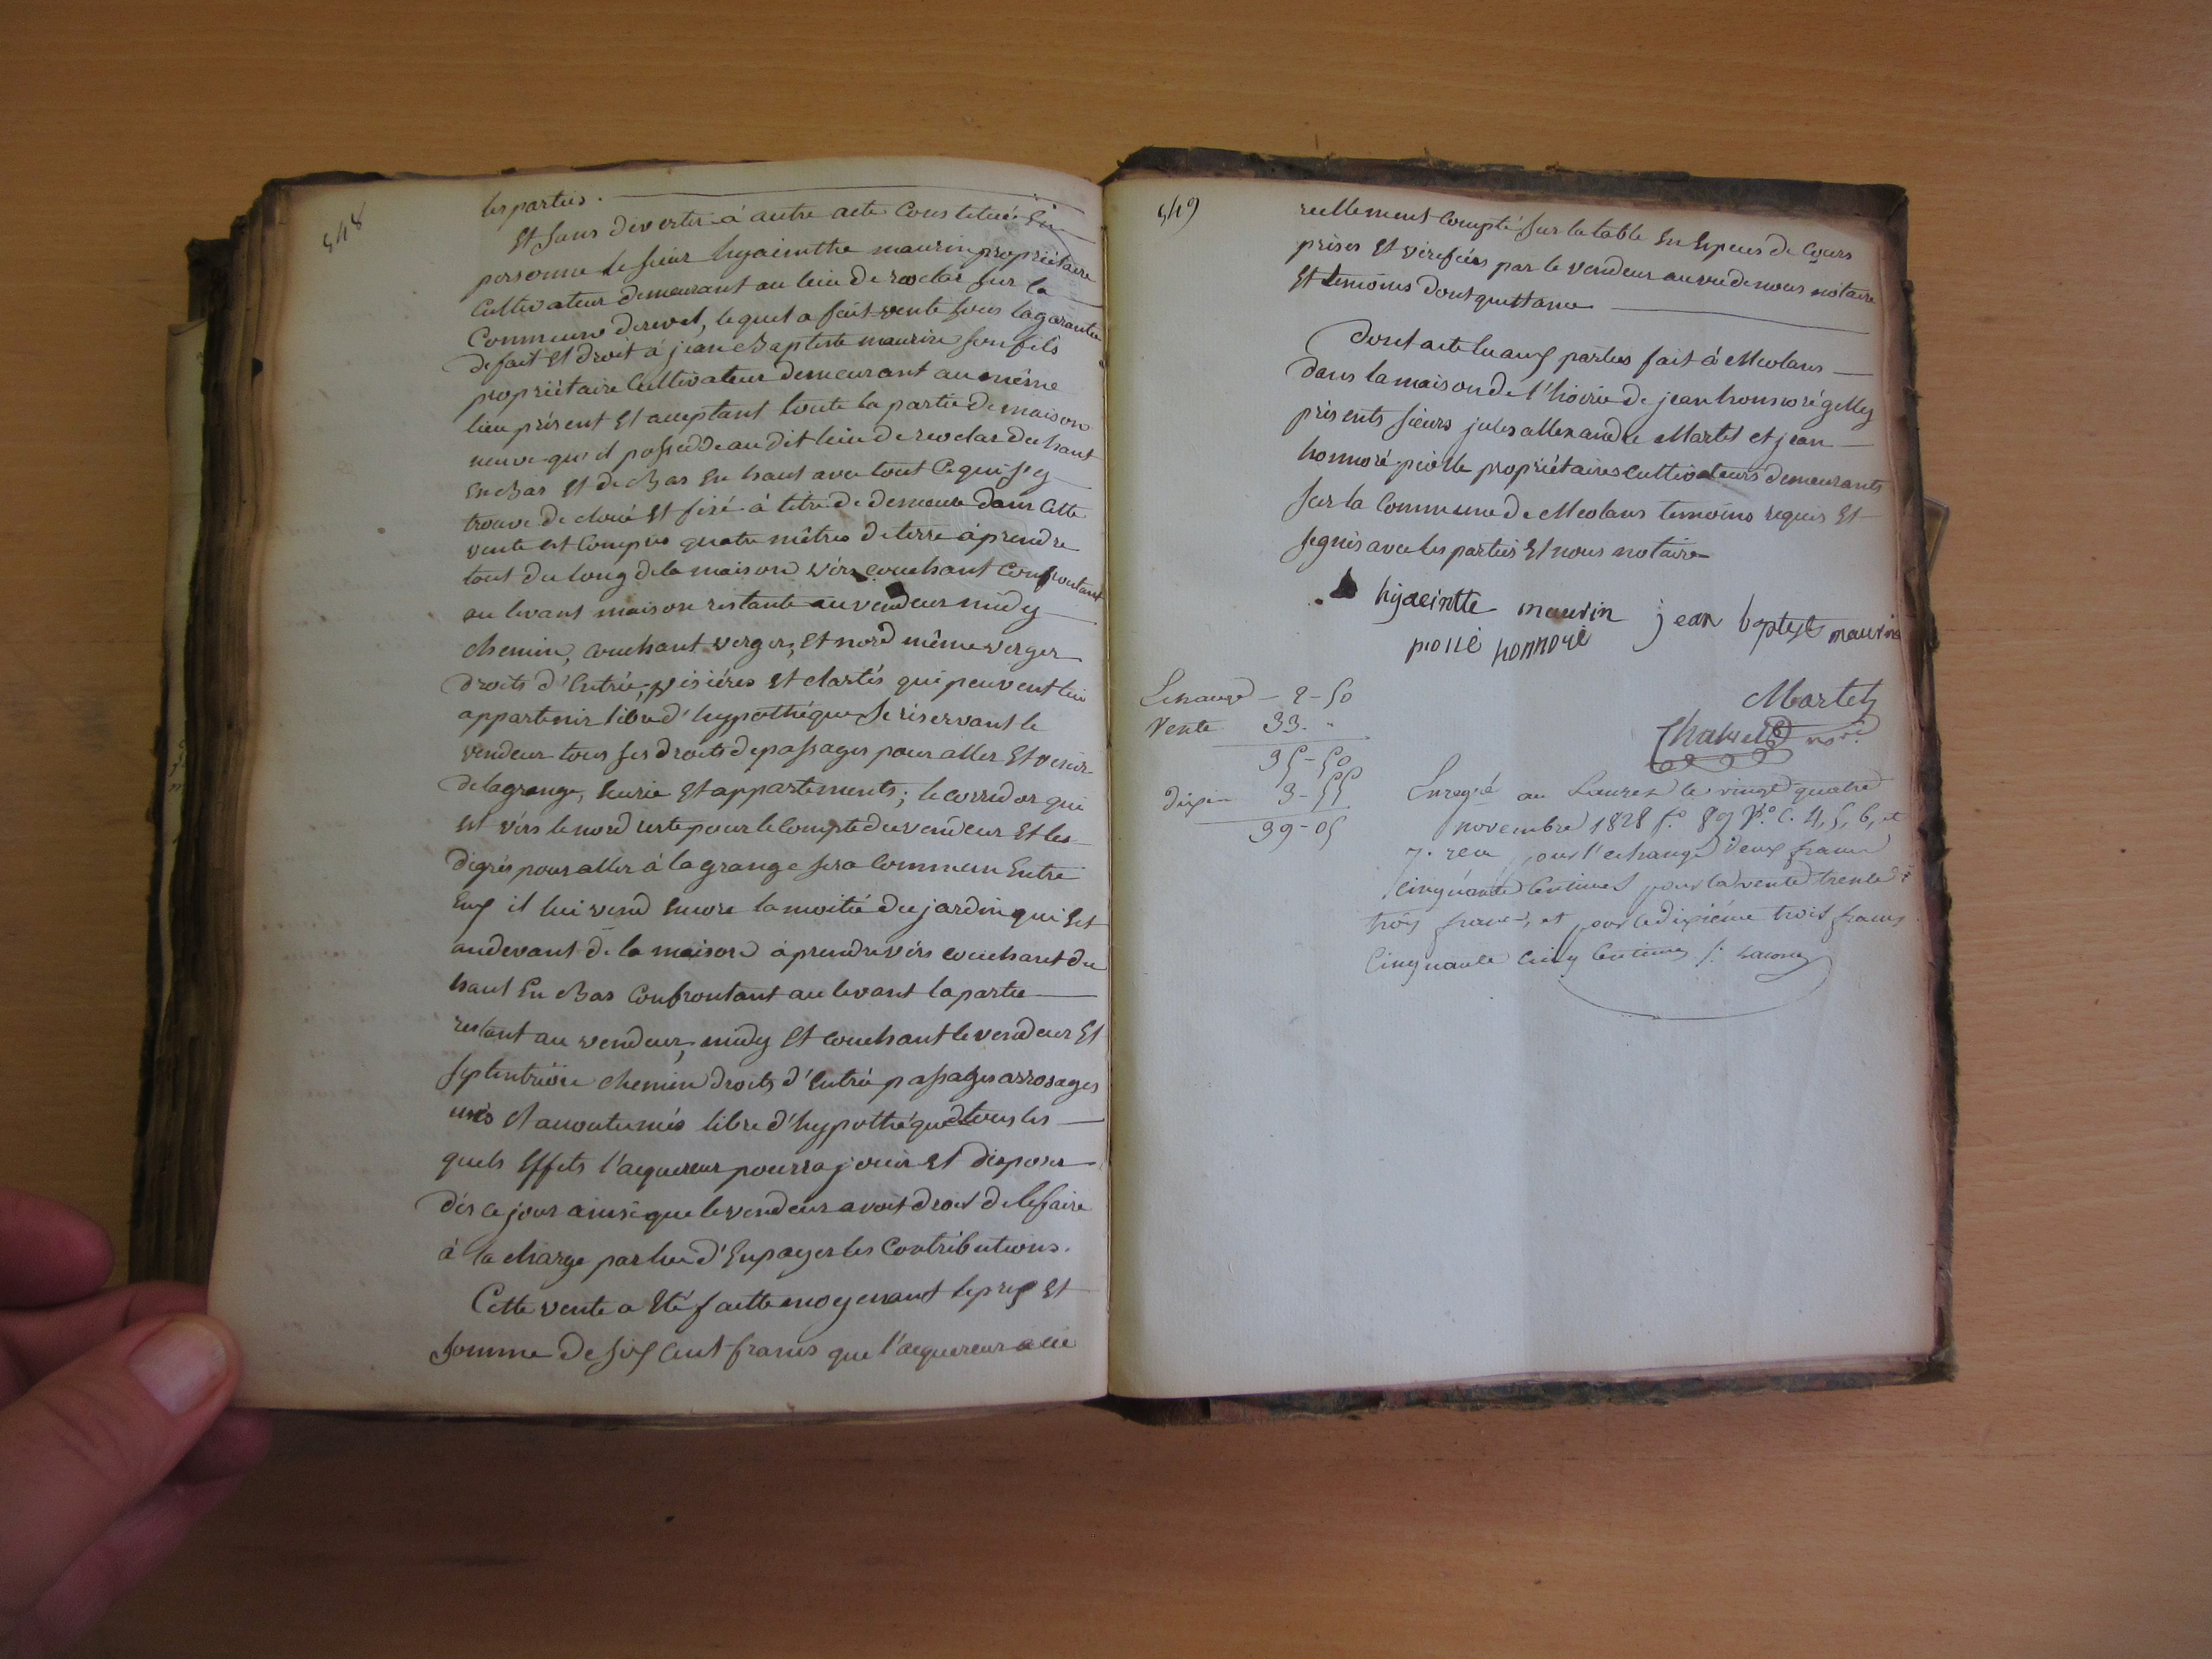 548
les parties.
Et sans divertir à autre acte Constitué En
personne le sieur hyacinthe maurin propriétaire
Cultivateur demeurant au lieu de rioclar sur la
Commune de revel, lequel a fait vente sous la garantie
de fait et droit à jean Baptiste maurin son fils
propriétaire Cultivateur demeurant au même
lieu présent Et acceptant toute la partie de maison
neuve qu'il possedde au dit lieu de rioclar du haut
En Bas Et de Bas En haut avec tout Ce qui s'y
trouve de cloué Et fixé à titre de demeure dans Cette
vente est Compris quatre mêtres de terre à prendre
tout du long de la maison vers couchant Confrontant
au levant maison restante au vendeur midy
chemin, couchant verger, Et nord même verger
droits d'Entrée, visières Et clartés qui peuvent lui
appartenir libre d'hypothéque se réservant le
vendeur tous ses droits de passages pour aller Et venir
de la grange, Ecurie Et appartements; le corridor qui
est vèrs le nord reste pour le compte du vendeur Et les
dégrés pour aller à la grange sera Commun Entre
Eux il lui vend Encore la moitié du jardin qui Est
audevant de la maison à prendre vèrs couchant du
haut En Bas Confrontant au levant la partie
restant au vendeur, midy Et couchant le vendeur Et
septentrion chemin droits d'Entrée passages arrosages
usés Et accoutumés libre d'hypothéque desquels
quels Effets l'acquereur pourra jouir Et disposer
dès ce jour ainsi que le vendeur avoit droit de le faire
à la charge par lui d'En payer les Contributions.
Cette vente a Eté faitte moyenant le prix Et
somme de six Cent francs que l'acquereur a
549
reellement Compté sur la table En Espèces de Cours
prises Et vérifiées par le vendeur au vu de nous notaire
Et temoins dont quittance
Dont acte lu aux parties fait à Meolans
dans la maison de l'hoirie de jean honnoré gilly
présents sieurs jules allexandre Martel et jean
honnoré piolle propriétaires cultivateurs demeurants
sur la Commune de Meolans temoins requis Et
signés avec les parties Et nous notaire
hyacintte maurin jean baptiste maurin
piolle honnoré
Martel
Echange — 2 - 50
Vente 33. "
35 - 50
Dixie 3 - 55
39 - 05
Enregré au Lauzet le vingt quatre
novembre 1828 fo. 89 Vo. C. 4, 5, 6, et
7. reçu pour l'echange deux francs
cinquante centimes pour la vente trente
trois francs, et pour le dixième trois francs
Cinquante Cinq Centimes